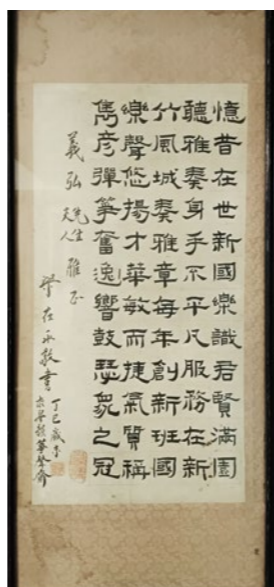 憶昔在世新國樂識君賢滿園
聽雅奏身手不平凡服務在新
竹風城奏雅章每年創新班國
樂聲悠揚才華敏而捷氣質稱
雋彥彈箏奮逸響鼓瑟眾之冠
義弘先生夫人雅正
梁在平敬書
丁巳歲